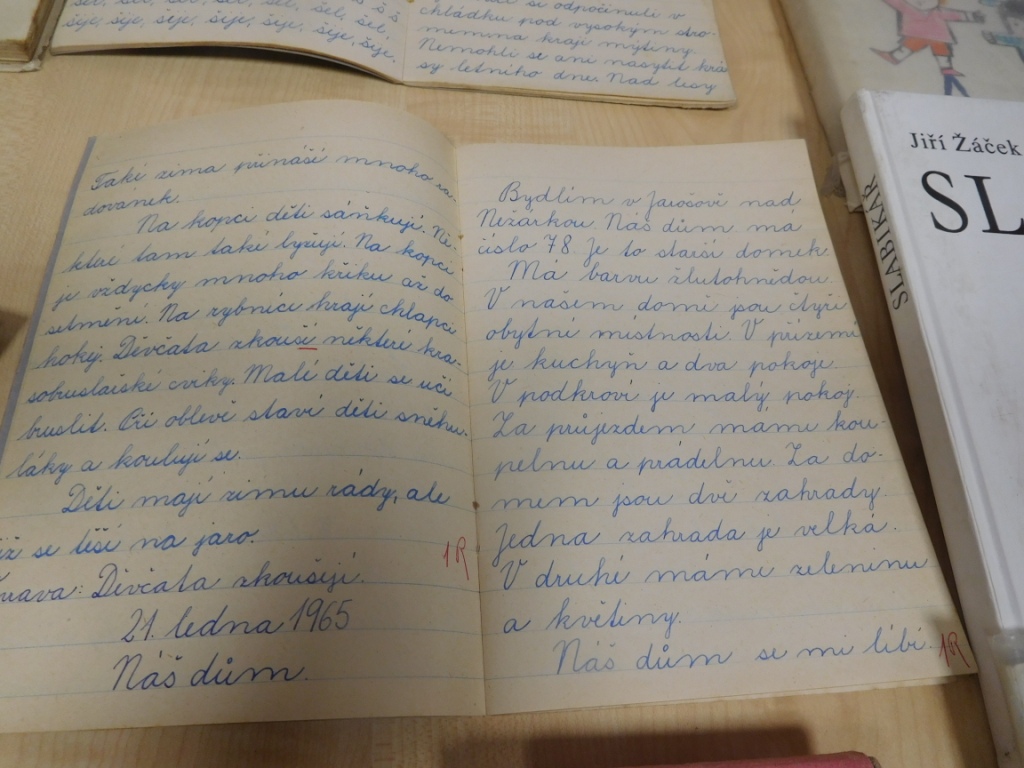 šel, šel, šel, šel, šel, šel, šel,
šije, šije, šije, šije, šije, šije, šije,
se odpočinuli v
chládku pod vysokým stro-
mem na kraji mýtiny.
Nemohli se ani nasytit krá
sy letního dne. Nad lesy
Také zima přináší mnoho ra-
dovánek.
Na kopci děti sáňkují. Ně-
které tam také lyžují. Na kopci
je vždycky mnoho křiku až do
setmění. Na rybníce hrají chlapci
hokej. Děvčata zkouší některé kra-
sobruslařské cviky. Malé děti se učí
bruslit. Při oblevě staví děti sněhu-
láky a koulují se.
Děti mají zimu rády, ale
již se těší na jaro.
1R
Děvčata zkoušejí.
21. ledna 1965
Náš dům.
Bydlím v Jarošově nad
Nežárkou. Náš dům má
číslo 78. Je to starší domek.
Má barvu žlutohnědou.
V našem domě jsou čtyři
obytné místnosti. V přízemí
je kuchyň a dva pokoje.
V podkroví je malý pokoj.
Za průjezdem máme kou-
pelnu a prádelnu. Za do-
mem jsou dvě zahrady.
Jedna zahrada je velká.
V druhé máme zeleninu
a květiny.
Náš dům se mi líbí.
1R
Jiří Žáček
SL
SLABIKÁŘ